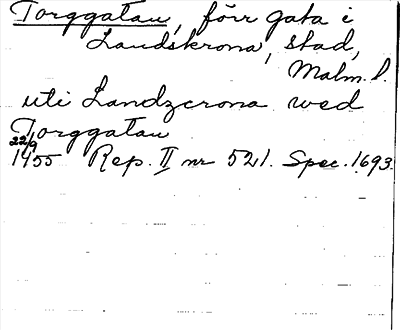 Torggatan, förr gata i
Landskrona, stad,
Malm. l.
uti Landzcrona wed
Torggatan
22/9
1455 Rep. II nr 521. Spec. 1693.